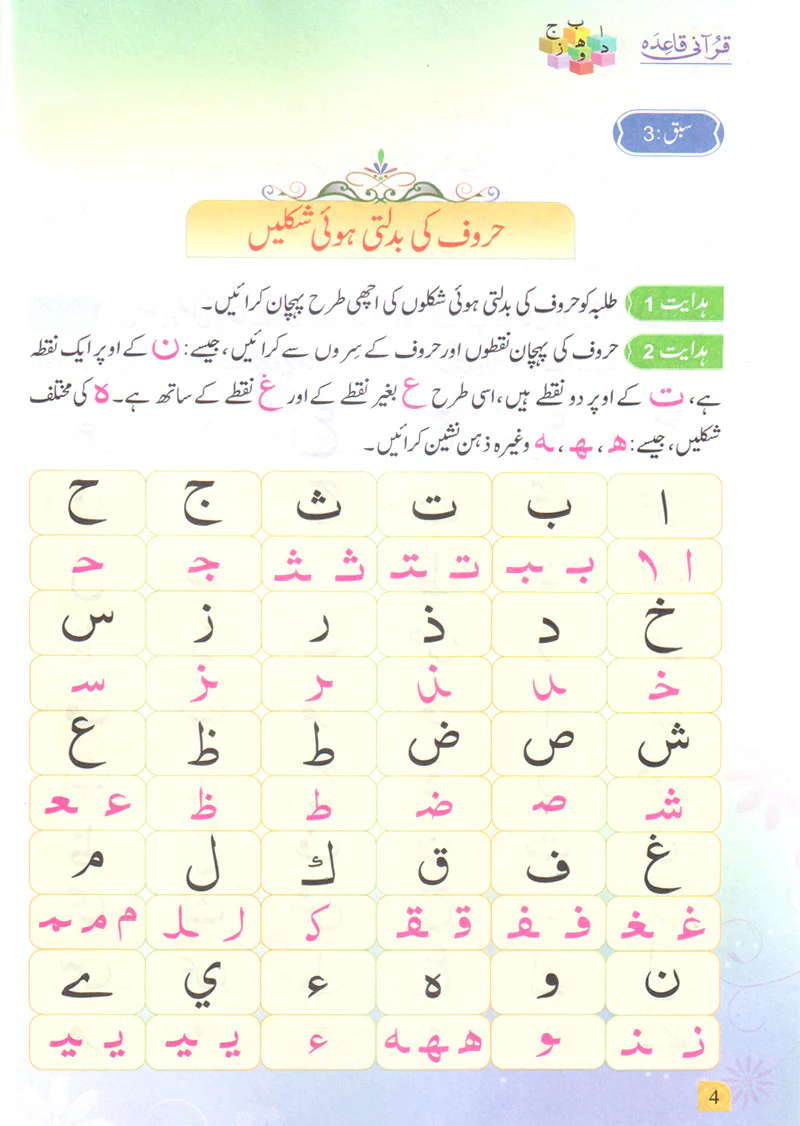 قرآنی قاعدہ
ا ب ج د ه و ز
سبق : 3
حروف کی بدلتی ہوئی شکلیں
ہدایت 1 طلبہ کو حروف کی بدلتی ہوئی شکلوں کی اچھی طرح پہچان کرائیں۔
ہدایت 2 حروف کی پہچان نقطوں اور حروف کے سِروں سے کرائیں، جیسے: ن کے اوپر ایک نقطہ
ہے، ت کے اوپر دو نقطے ہیں، اسی طرح ع بغیر نقطے کے اور غ نقطے کے ساتھ ہے۔ ہ کی مختلف
شکلیں، جیسے: ھ، ـهـ، ـه وغیرہ ذہن نشین کرائیں۔
ا ب ت ث ج ح
ا ـا بـ ـبـ تـ ـتـ ثـ ـثـ جـ حـ
خ د ذ ر ز س
خـ ـد ـذ ـر ـز سـ
ش ص ض ط ظ ع
شـ صـ ضـ ط ظ عـ ـعـ
غ ف ق ك ل م
غـ ـغـ فـ ـفـ قـ ـقـ كـ لـ ـلـ م مـ ـمـ
ن و ه ء ي ے
نـ ـنـ ـو هـ ـهـ ـه ء يـ ـيـ يـ ـيـ
4